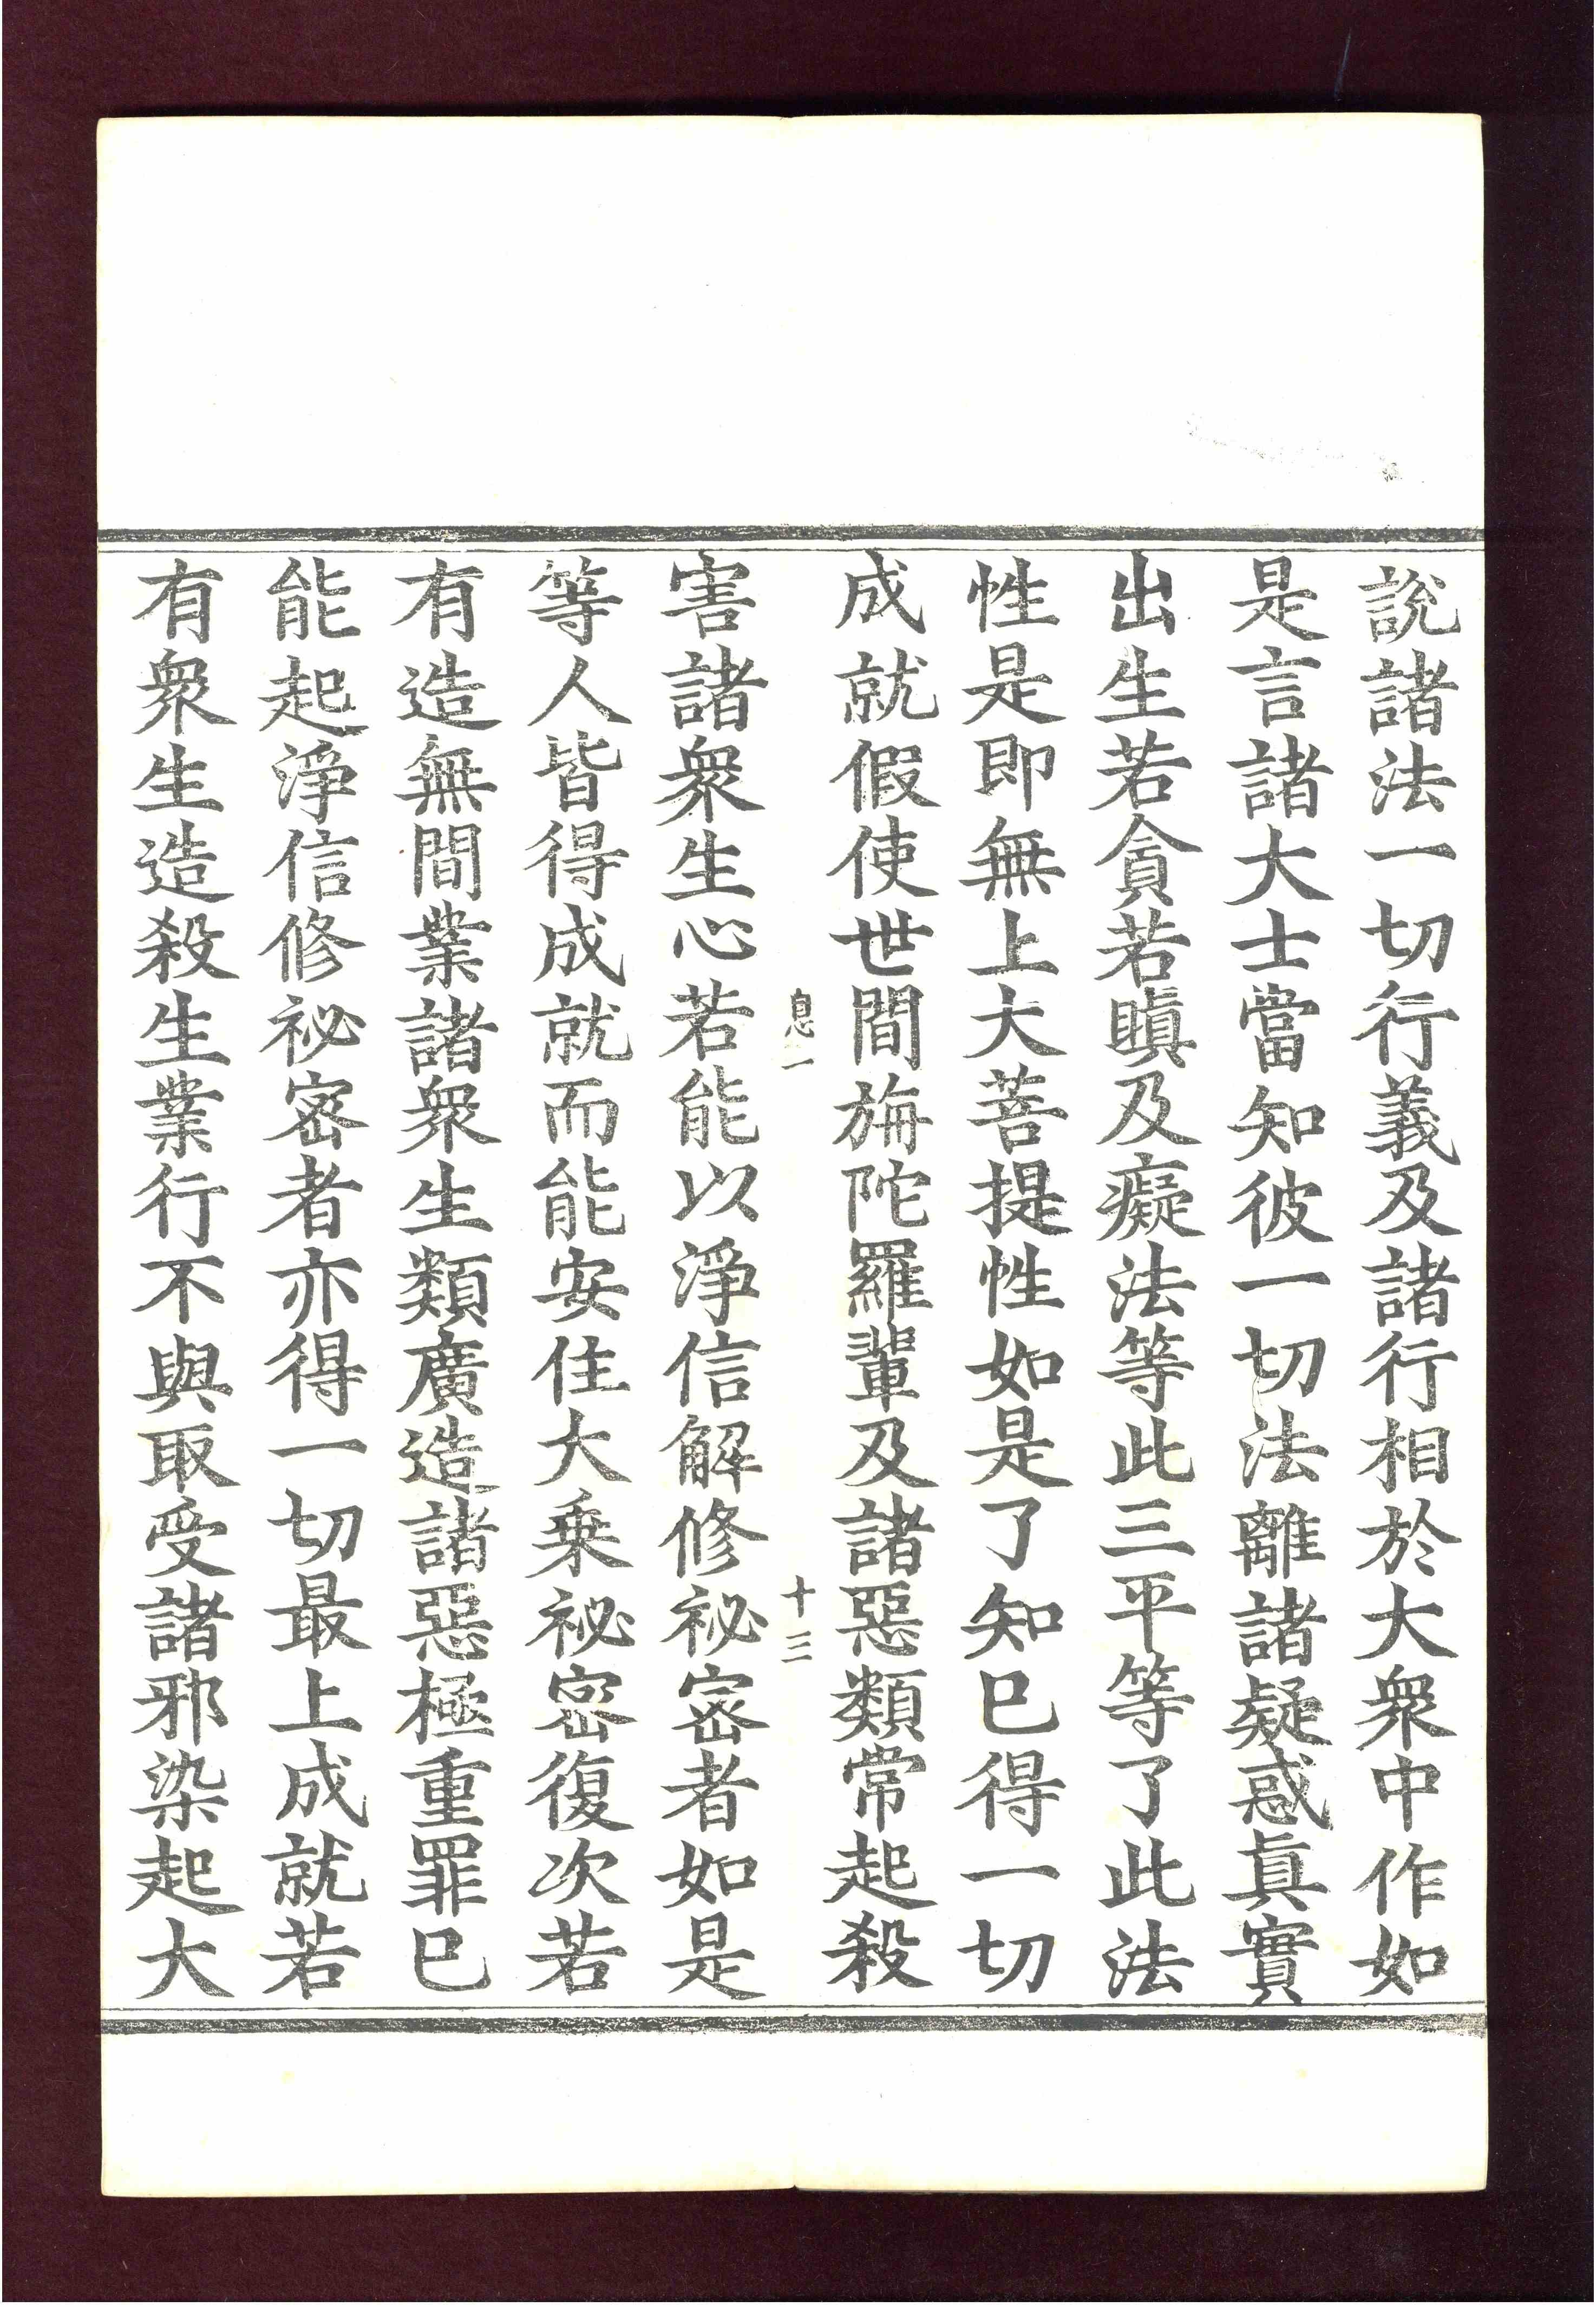 說諸法一切行義及諸行相於大衆中作如
是言諸大士當知彼一切法離諸疑惑眞實
出生若貪若瞋及癡法等此三平等了此法
性是即無上大菩提性如是了知已得一切
成就假使世間旃陀羅輩及諸惡類常起殺
息一
十三
害諸衆生心若能以淨信解修祕密者如是
等人皆得成就而能安住大乗祕密復次若
有造無間業諸衆生類廣造諸惡極重罪已
能起淨信修祕密者亦得一切最上成就若
有衆生造殺生業行不與取受諸邪染起大